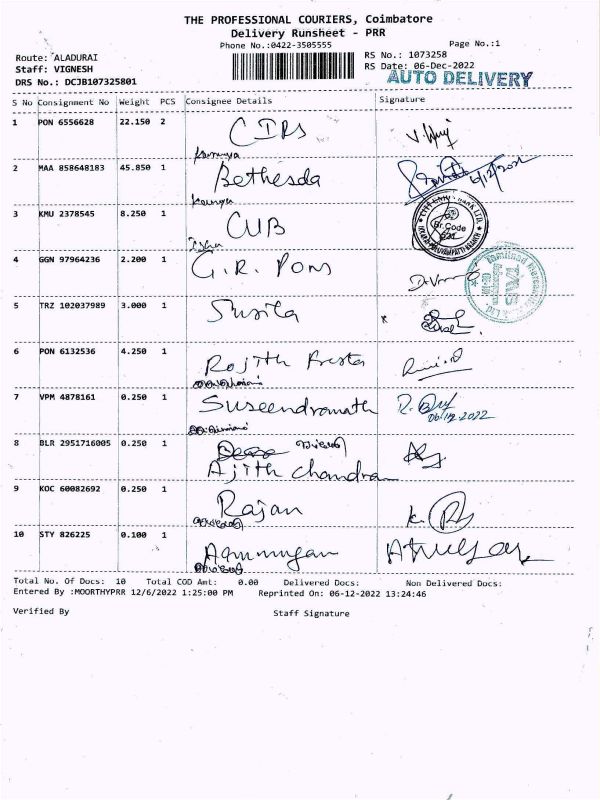 THE PROFESSIONAL COURIERS, Coimbatore
Delivery Runsheet - PRR
Phone No.:0422-3505555
Page No.:1
Route: ALADURAI
RS No.: 1073258
Staff: VIGNESH
RS Date: 06-Dec-2022
DRS No.: DCJB107325801
AUTO DELIVERY
S No Consignment No Weight PCS Consignee Details Signature
1 PON 6556628 22.150 2
2 MAA 858648183 45.850 1 Bethesda
3 KMU 2378545 8.250 1 CUB
Br.Code
4 GGN 97964236 2.200 1 G.R. Pons
5 TRZ 102037989 3.000 1 Susila
6 PON 6132536 4.250 1 Rojith
7 VPM 4878161 0.250 1 Suseendranath
06/12/2022
8 BLR 2951716005 0.250 1
Ajith Chandran
9 KOC 60082692 0.250 1 Rajan
10 STY 826225 0.100 1
Total No. Of Docs: 10 Total COD Amt: 0.00 Delivered Docs: Non Delivered Docs:
Entered By :MOORTHYPRR 12/6/2022 1:25:00 PM Reprinted On: 06-12-2022 13:24:46
Verified By Staff Signature